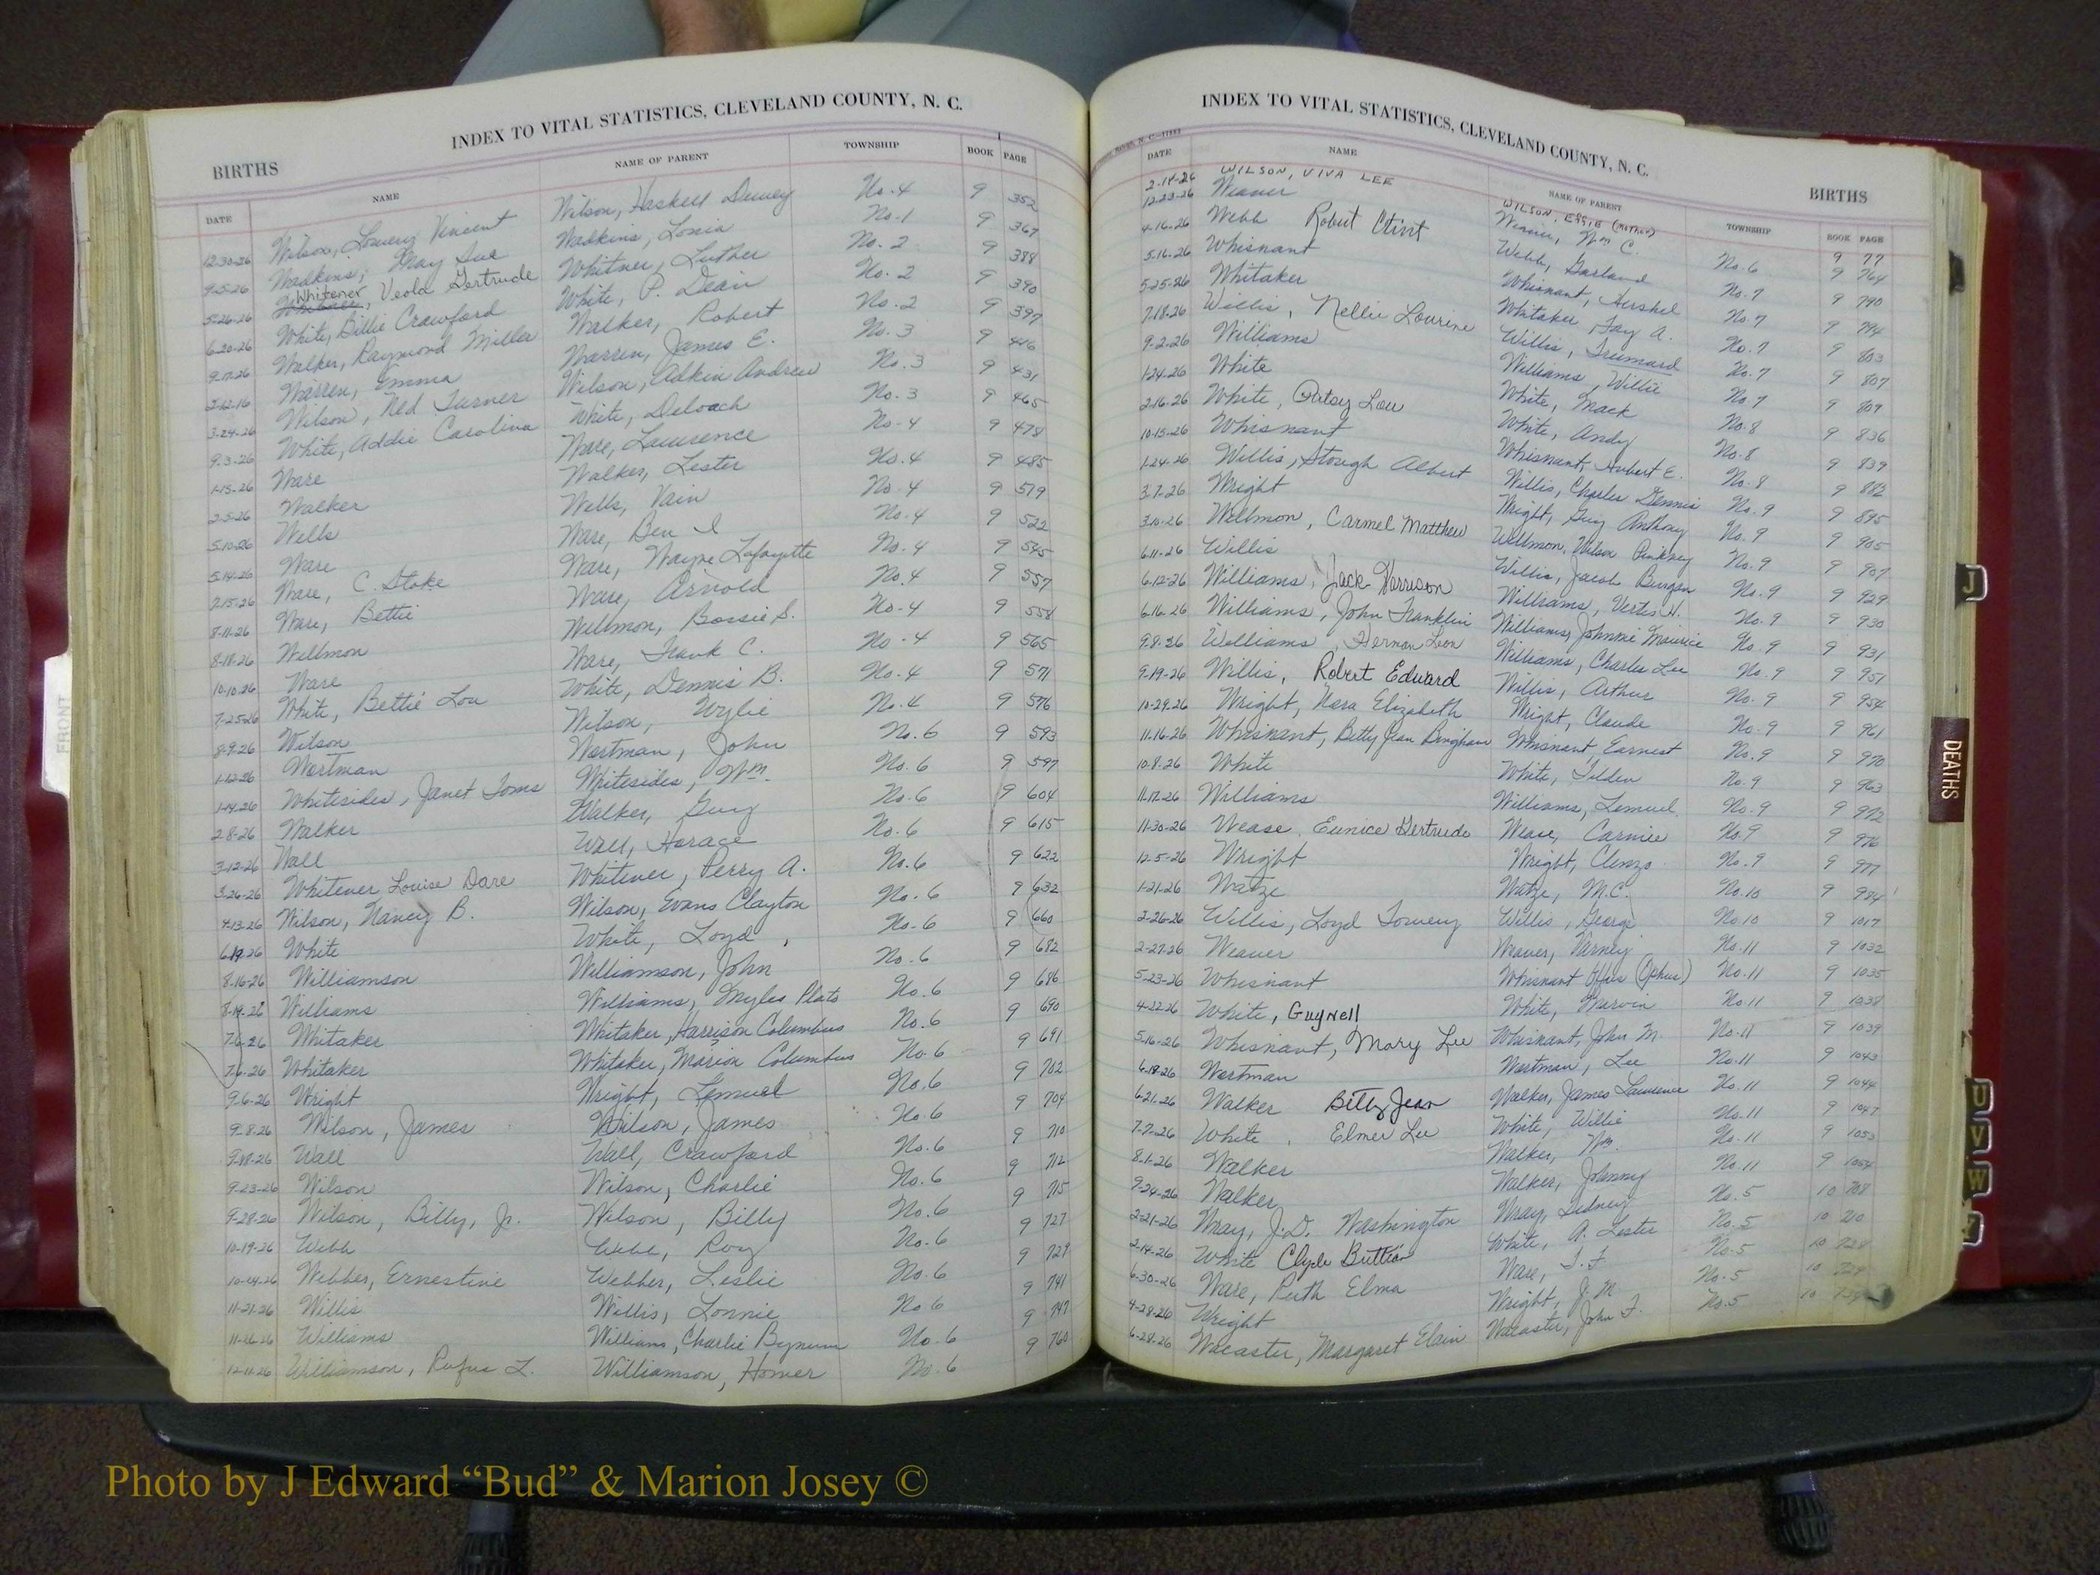 INDEX TO VITAL STATISTICS, CLEVELAND COUNTY, N. C.
BIRTHS
DATE NAME NAME OF PARENT TOWNSHIP BOOK PAGE
12-30-26 Wilson, Lowery Vincent Wilson, Haskell Dewey No. 4 9 352
9-5-26 Wadkins, May Sue Wadkins, Lonia No. 1 9 367
5-26-26 Whitener, Veola Gertrude Whitner, Luther No. 2 9 388
6-20-26 White, Billie Crawford White, P. Dean No. 2 9 390
9-17-26 Walker, Raymond Miller Walker, Robert No. 2 9 397
2-12-16 Warren, Emma Warren, James E. No. 3 9 416
3-24-26 Wilson, Ned Turner Wilson, Adkin Andrew No. 3 9 431
9-3-26 White, Addie Carolina White, Deloach No. 3 9 465
1-15-26 Ware Ware, Lawrence No-4 9 478
2-5-26 Walker Walker, Lester No. 4 9 485
5-10-26 Wells Wells, Vain No. 4 9 519
5-14-26 Ware Ware, Ben I No. 4 9 522
7-15-26 Ware, C. Stoke Ware, Wayne Lafayette No. 4 9 545
8-11-26 Ware, Bettie Ware, Arnold No. 4 9 557
8-18-26 Wellmon Wellmon, Bossie S. No-4 9 558
10-10-26 Ware Ware, Frank C. No-4 9 565
7-25-26 White, Bettie Lou White, Dennis B. No. 4 9 571
8-9-26 Wilson Wilson, Wylie No. 4 9 576
1-12-26 Wortman Wortman, John No. 6 9 593
1-14-26 Whitesides, Janet Toms Whitesides, Wm. No. 6 9 597
2-8-26 Walker Walker, Guy No. 6 9 604
3-12-26 Wall Wall, Horace No. 6 9 615
3-26-26 Whitener Louise Dare Whitener, Perry A. No. 6 9 622
4-13-26 Wilson, Nancy B. Wilson, Evans Clayton No. 6 9 632
6-19-26 White White, Loyd No. 6 9 660
8-16-26 Williamson Williamson, John No. 6 9 682
8-14-26 Williams Williams, Myles Plato No. 6 9 686
7-6-26 Whitaker Whitaker, Harrison Columbus No. 6 9 690
7-6-26 Whitaker Whitaker, Marion Columbus No. 6 9 691
9-6-26 Wright Wright, Lemuel No. 6 9 702
9-8-26 Wilson, James Wilson, James No. 6 9 704
9-18-26 Wall Wall, Crawford No. 6 9 710
9-23-26 Wilson Wilson, Charlie No. 6 9 712
9-28-26 Wilson, Billy, Jr. Wilson, Billy No. 6 9 715
10-19-26 Webb Webb, Roy No. 6 9 727
10-14-26 Webber, Ernestine Webber, Leslie No. 6 9 729
11-21-26 Willis Willis, Lonnie No. 6 9 741
11-26-26 Williams Williams, Charlie Bynum No. 6 9 747
12-11-26 Williamson, Rufus L. Williamson, Homer No. 6 9 760
INDEX TO VITAL STATISTICS, CLEVELAND COUNTY, N. C.
BIRTHS
DATE NAME NAME OF PARENT TOWNSHIP BOOK PAGE
2-14-26 WILSON, VIVA LEE WILSON, EFFIE (MOTHER) 9 77
12-23-26 Weaver Weaver, Wm C. No. 6 9 764
4-16-26 Webb Robert Clint Webb, Garland No. 7 9 790
5-16-26 Whisnant Whisnant, Hershel No. 7 9 794
5-25-26 Whitaker Whitaker, Fay A. No. 7 9 803
7-18-26 Willis, Nellie Lourine Willis, Trumard No. 7 9 807
9-2-26 Williams Williams, Willie No. 7 9 809
1-24-26 White White, Mack No. 8 9 836
2-16-26 White, Patsy Lou White, Andy No. 8 9 839
10-15-26 Whisnant Whisnant, Hubert E. No. 8 9 882
1-24-26 Willis, Stough Albert Willis, Charles Dennis No. 9 9 895
3-7-26 Wright Wright, Guy Anthony No. 9 9 905
3-10-26 Wellmon, Carmel Matthew Wellmon, Wilson Pinkney No. 9 9 907
6-11-26 Willis Willis, Jacob Burgen No. 9 9 929
6-12-26 Williams, Jack Harrison Williams, Vertis H. No. 9 9 930
6-16-26 Williams, John Franklin Williams, Johnnie Maurice No. 9 9 931
9-8-26 Williams, Herman Leon Williams, Charles Lee No. 9 9 951
9-19-26 Willis, Robert Edward Willis, Arthur No. 9 9 954
10-29-26 Wright, Nora Elizabeth Wright, Claude No. 9 9 961
11-16-26 Whisnant, Betty Jean Bingham Whisnant, Earnest No. 9 9 970
10-8-26 White White, Tilden No. 9 9 963
11-17-26 Williams Williams, Lemuel No. 9 9 972
11-30-26 Wease, Eunice Gertrude Wease, Carmie No. 9 9 976
12-5-26 Wright Wright, Clenzo No. 9 9 977
1-21-26 Watze Watze, M.C. No. 10 9 984
2-26-26 Willis, Loyd Towery Willis, George No. 10 9 1017
2-27-26 Weaver Weaver, Varney No. 11 9 1032
5-23-26 Whisnant Whisnant Offus (Ophus) No. 11 9 1035
4-22-26 White, Guynell White, Marvin No. 11 9 1038
5-16-26 Whisnant, Mary Lee Whisnant, John M. No. 11 9 1039
6-18-26 Wortman Wortman, Lee No. 11 9 1043
6-21-26 Walker Betty Jean Walker, James Lawrence No. 11 9 1044
7-7-26 White, Elmer Lee White, Willie No. 11 9 1047
8-1-26 Walker Walker, Wm. No. 11 9 1053
9-24-26 Walker Walker, Johnny No. 11 9 1054
2-21-26 Wray, J.D. Washington Wray, Sidney No. 5 10 708
2-14-26 White Clyde White, A. Lester No. 5 10
6-30-26 Ware, Ruth Elma Ware, T.F. No. 5 10 728
4-28-26 Wright Wright, J.M. No. 5 10 729
6-28-26 Wacaster, Margaret Elain Wacaster, John F. No. 5 10
FRONT
J
DEATHS
U
V
W
Photo by J Edward “Bud” & Marion Josey ©